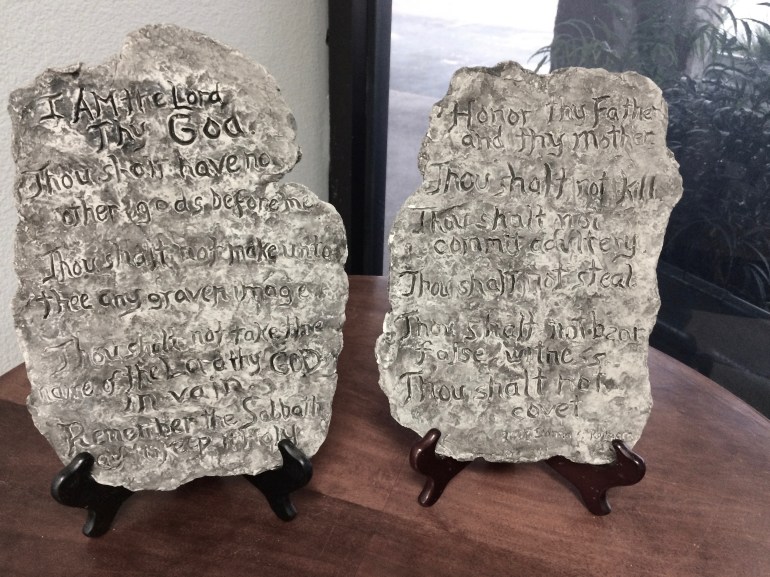 I AM the Lord,
Thy God.
Thou shalt have no
other gods before me
Thou shalt not make unto
thee any graven image
Thou shalt not take the
name of the Lord thy GOD
in vain.
Remember the Sabbath
Holy
Honor Thy Father
and thy mother
Thou shalt not kill
Thou shalt not
commit adultery
Thou shalt not steal
Thou shalt not bear
false witness
Thou shalt not
covet